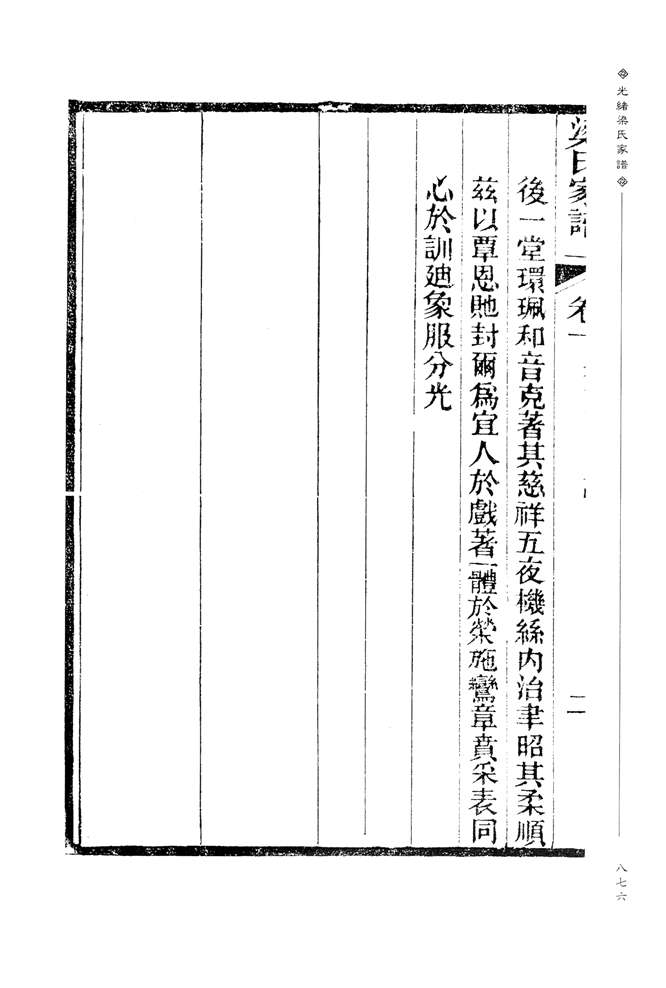 光緒梁氏家譜
梁氏家譜 卷一 二
後一堂環珮和音克著其慈祥五夜機絲内治聿昭其柔順
茲以覃恩貤封爾爲宜人於戲著一體於榮施鸞章賁采表同
心於訓廸象服分光
八七六